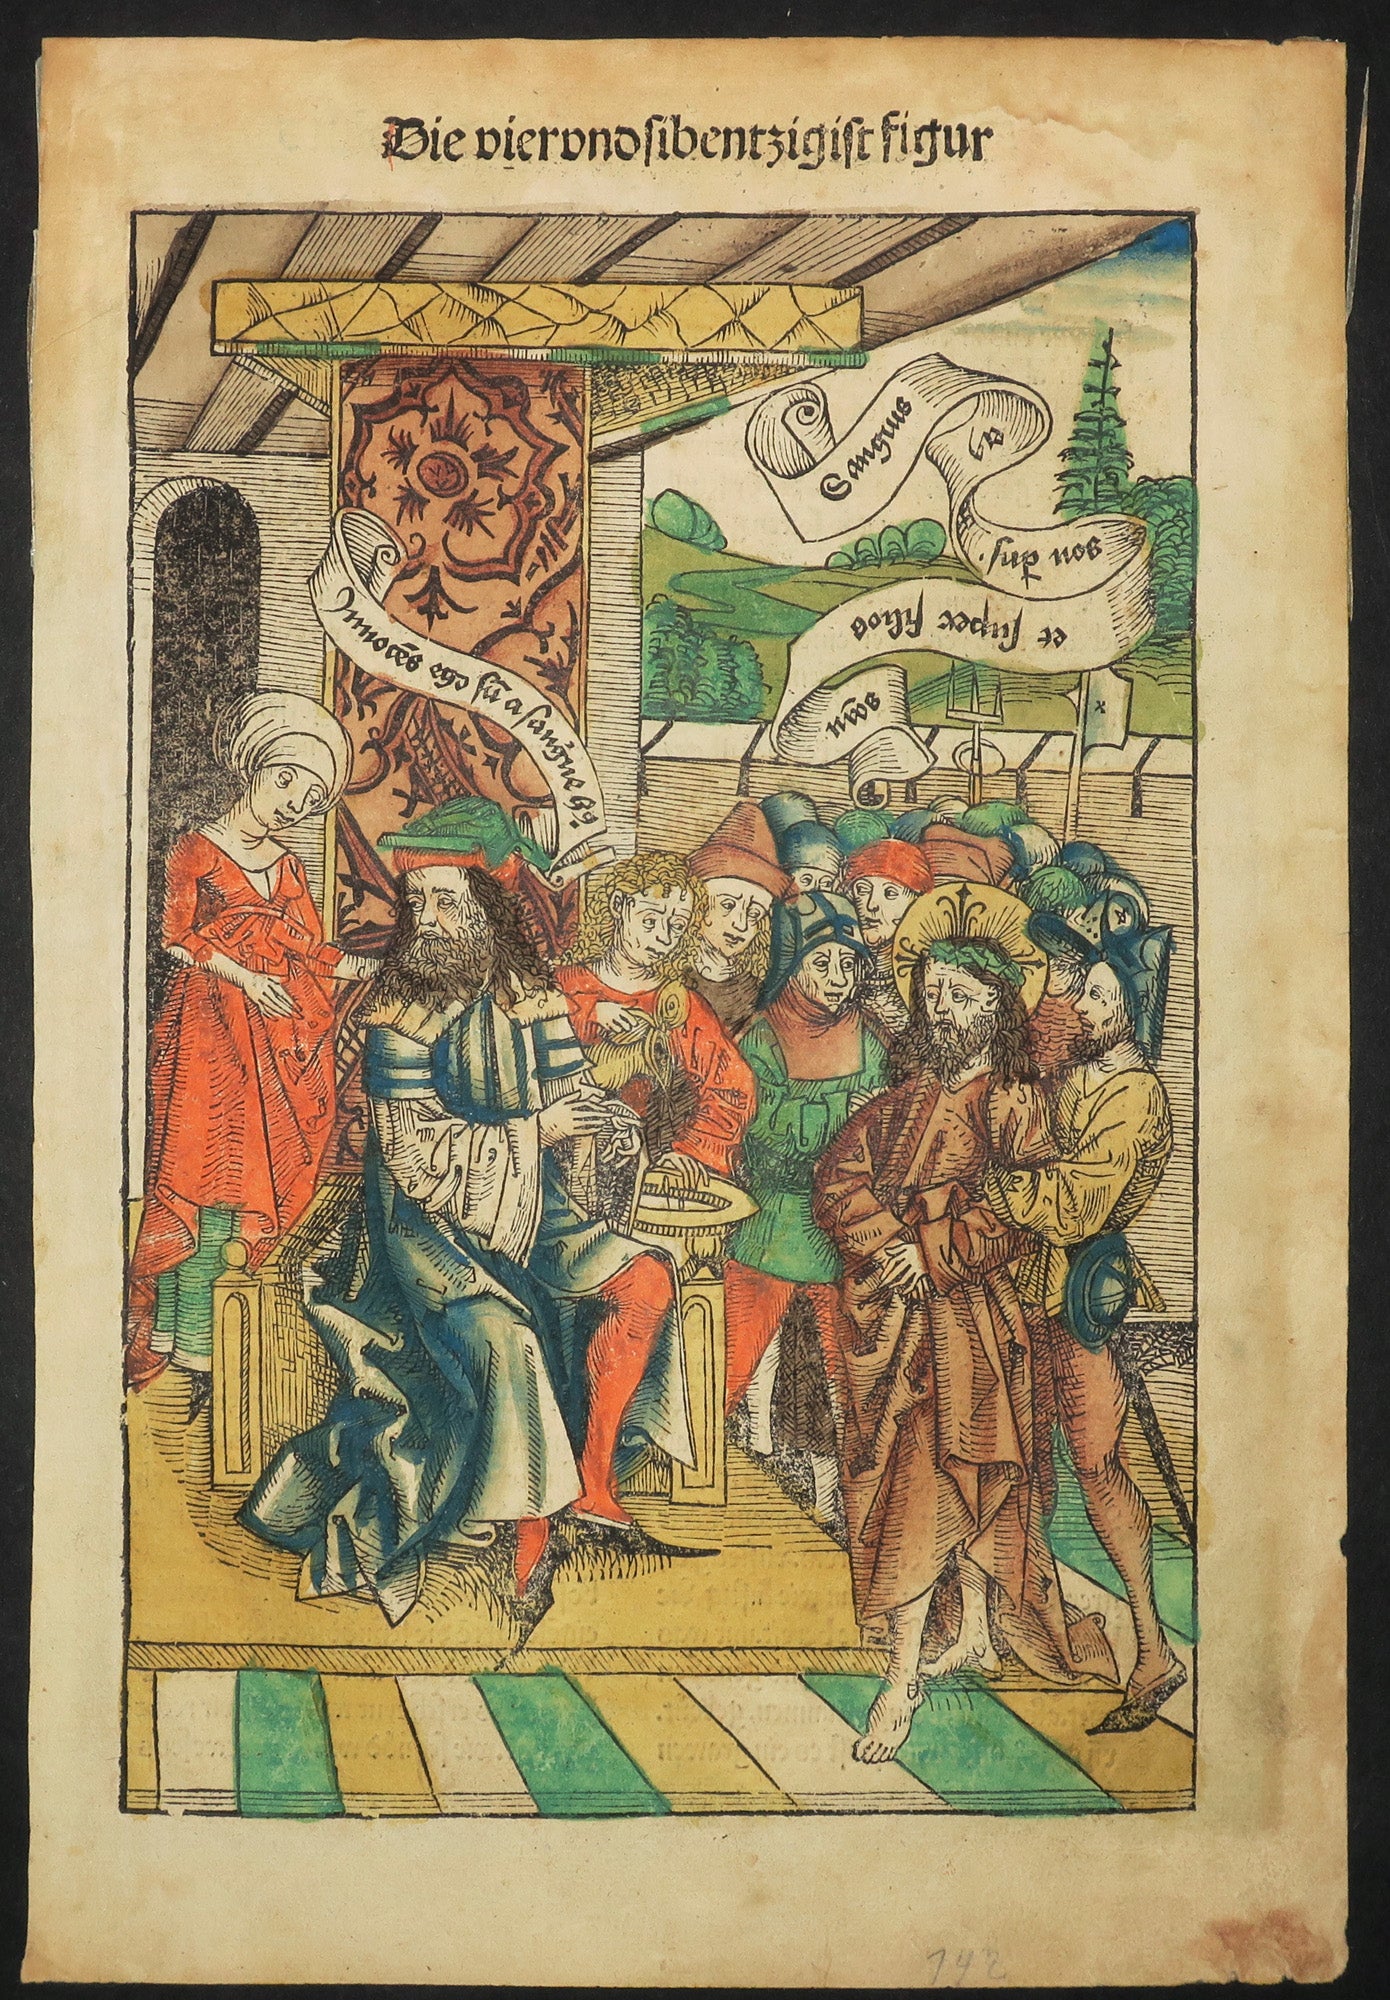 Die viervndsibentzigist figur
Sanguis
ei9
sup nos.
et super filios
nr̄os
Innocēs ego sū a sangūe h9
742